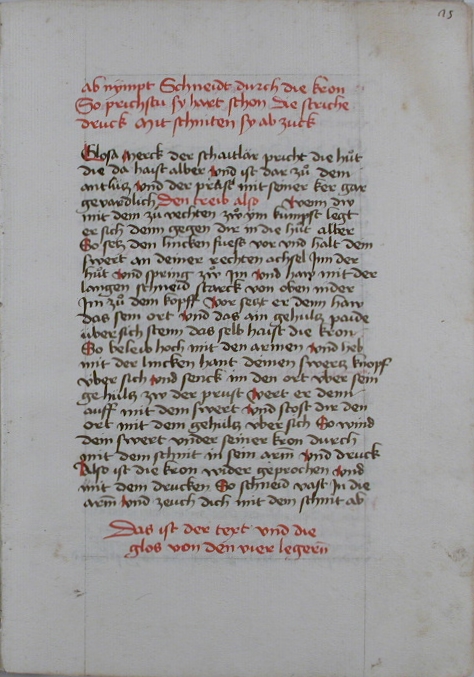 25
ab nympt Schneidt durch die kron
So prichstu sy hart schon Die striche
druck Mit schniten sy ab zuck
Glosa Merck der schaitlär pricht die hůt
die da haist alber Vnd ist dar zů dem
antlütz Vnd der prüst mit seiner ker gar
gevärdlich Den treib also Wenn dw
mit dem zu vechten zw ÿm kumpst legt
er sich denn gegen dir in die hůt alber
So setz den lincken fuess vor vnd halt dein
swert an deiner rechten achsel Inn der
hůt Vnd spring zw Im vnd haw mit der
langen schneid starck von oben nider
Im zů dem kopff Vor setzt er denn haw
das sein ort Vnd das ain gehultz paide
übersich stenn das selb haist die kron
So beleib hoch mit den armen Vnd heb
mit der lincken hant deinen swertz knopf
vber sich Vnd senck im den ort vber sein
gehultz zw der prust Wert er denn
auff mit dem swert Vnd stost dir den
ort mit dem gehultz vber sich So wind
dem swert vnder seiner kron durch
mit dem schnit in sein arm Vnd druck
Also ist die kron wider geprochen Vnd
mit dem drucken So schneid vast In die
arm Vnd zeuch dich mit dem schnit ab
Das ist der text vnd die
glos von den vier legernn